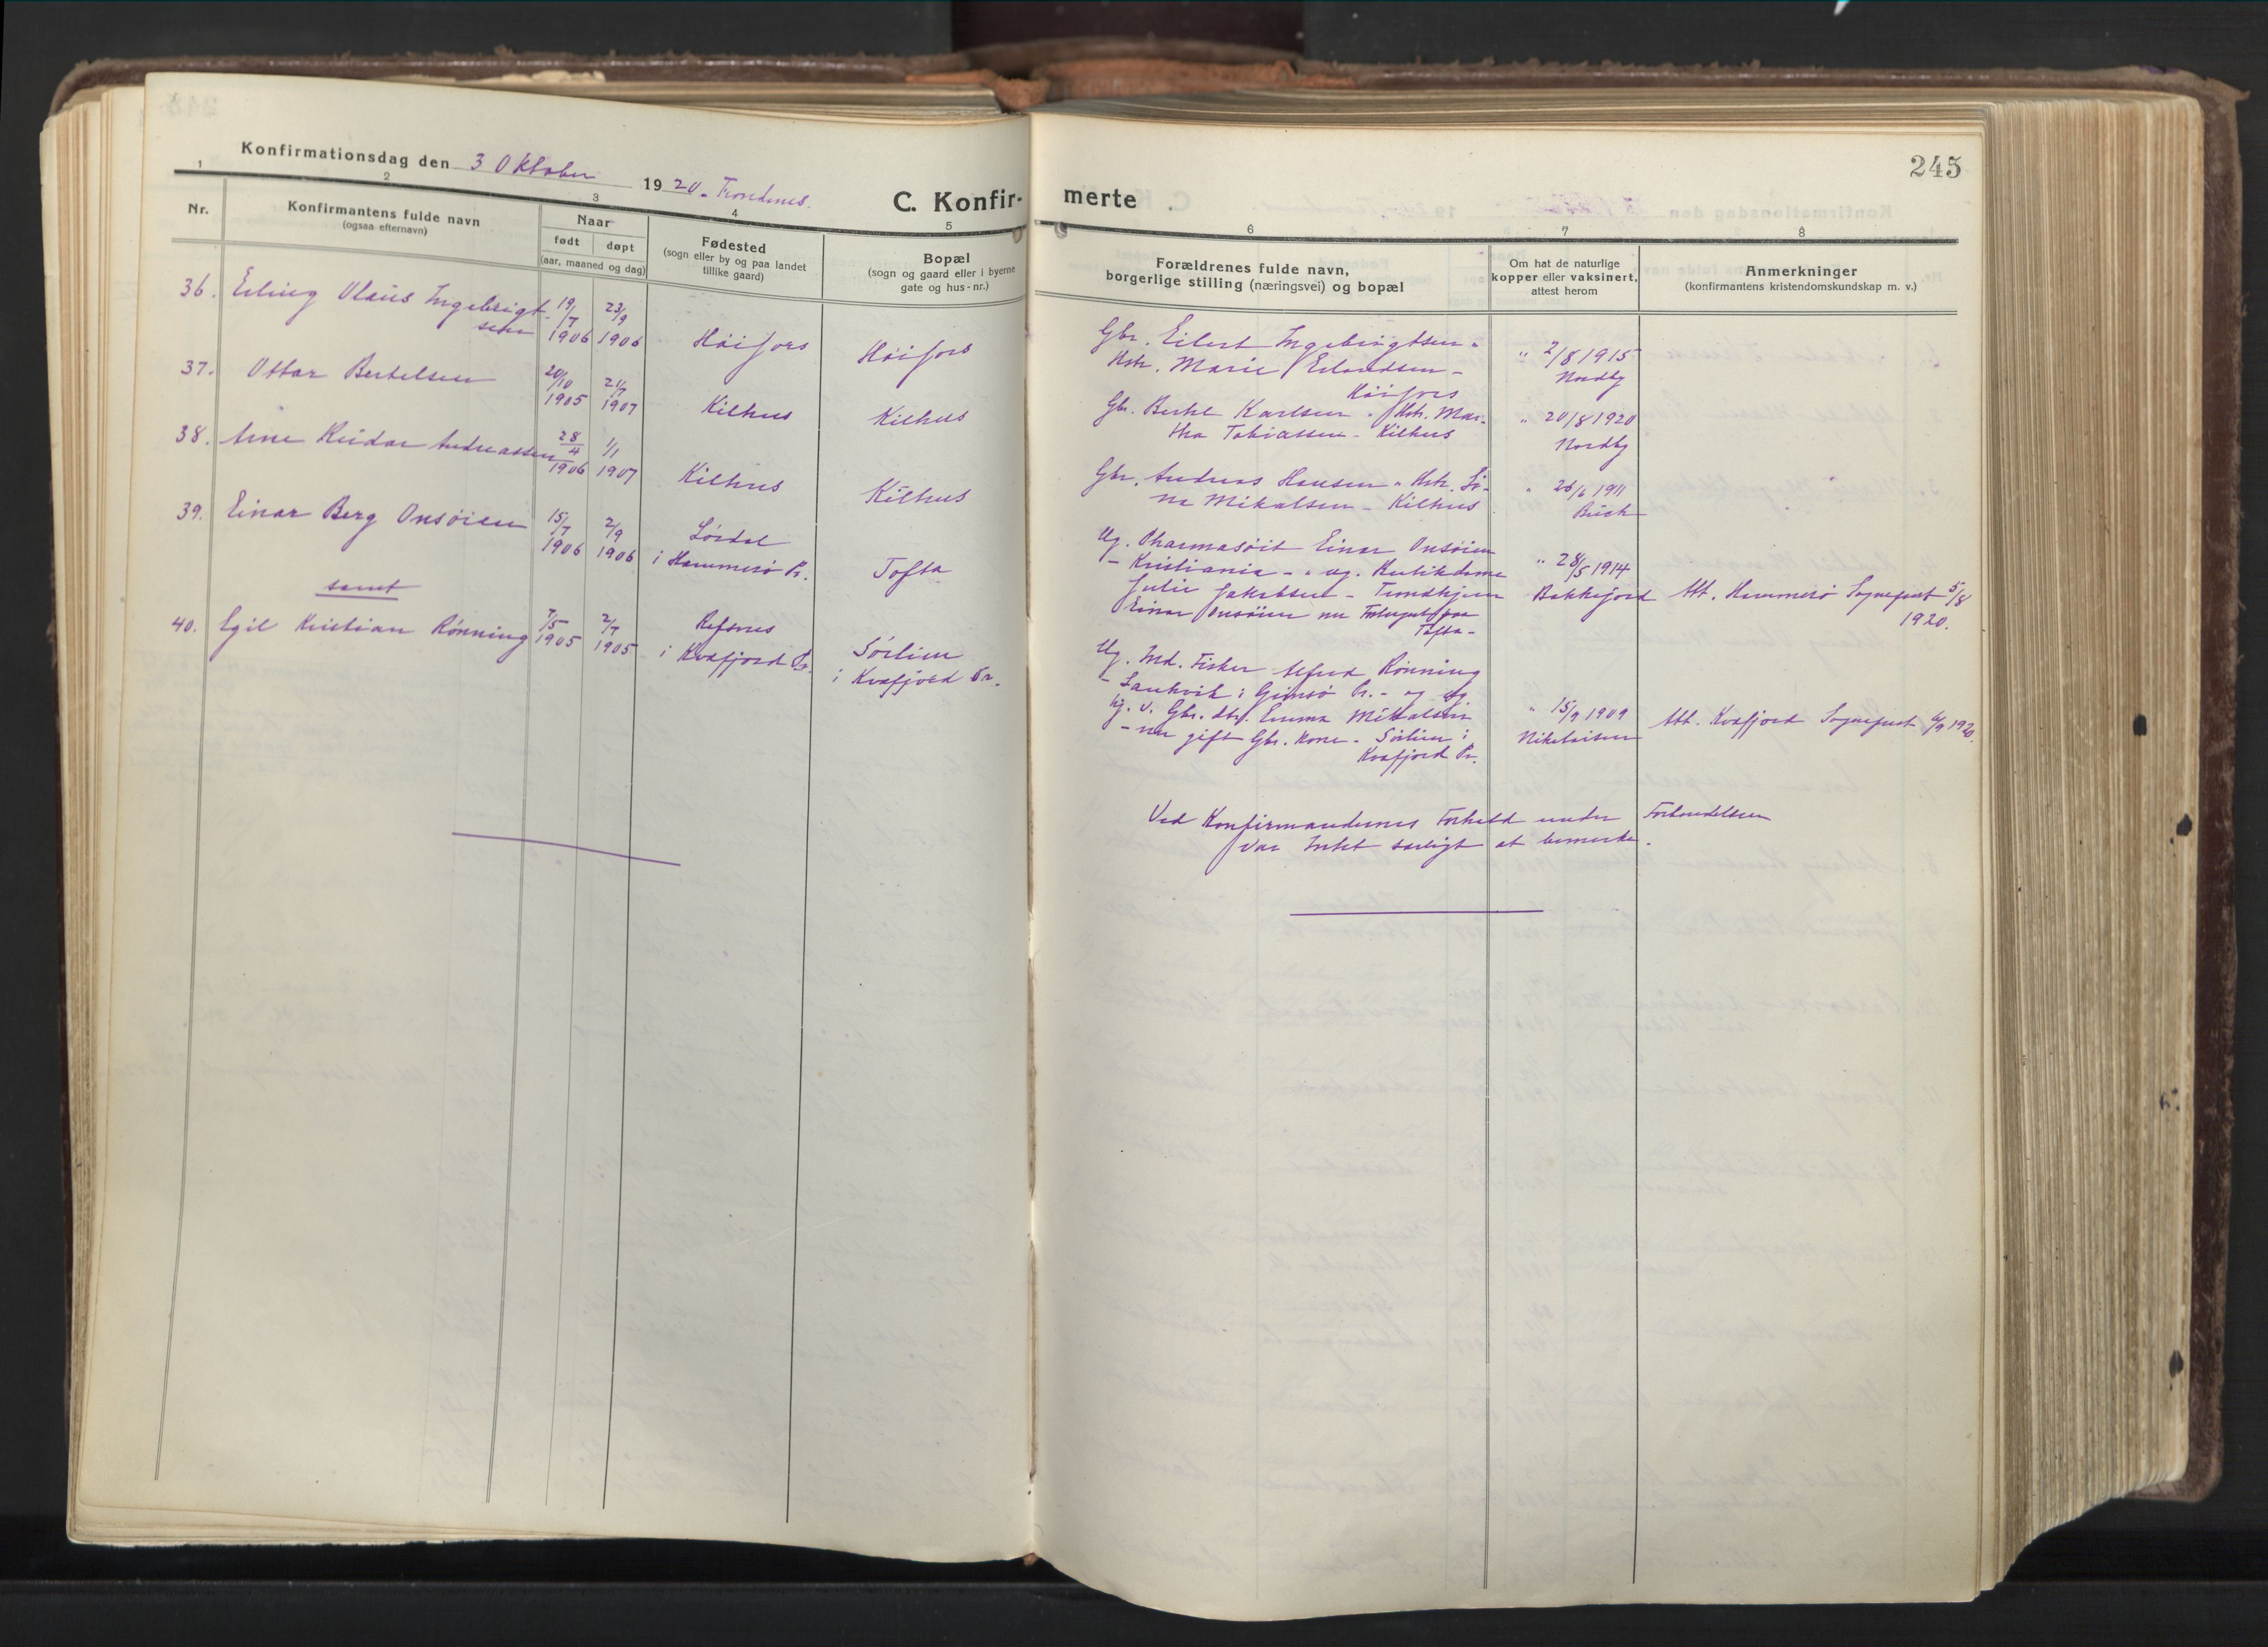 245
Konfirmationsdag den 3 Oktober 1920. Trondenes.
C. Konfir-
merte
1 2 3 4 5 6 7 8
Nr.
Konfirmantens fulde navn
(ogsaa efternavn)
Naar
født døpt
(aar, maaned og dag)
Fødested
(sogn eller by og paa landet
tillike gaard)
Bopæl
(sogn og gaard eller i byerne
gate og hus-nr.)
Forældrenes fulde navn,
borgerlige stilling (næringsvei) og bopæl
Om hat de naturlige
kopper eller vaksinert,
attest herom
Anmerkninger
(konfirmantens kristendomskundskap m. v.)
36. Erling Olaus Ingebrigt-
sen
19/7 1906
23/9 1906
Høifors
Høifors
Gbr. Eilert Ingebrigtsen "
Hstr. Marie Erlandsen -
Høifors
" 2/8 1915
Nordby
37. Ottar Bertelsen
20/10 1905
1907
Kilhus
Kilhus
Gbr. Bertel Karlsen " Hstr. Mar-
tha Tobiassen - Kilhus
" 20/8 1920
Nordby
38. Arne Reidar Andreassen
28/4 1906
1/1 1907
Kilhus
Kilhus
Gbr. Andreas Hansen " Hstr. Li-
na Mikalsen - Kilhus
" 26/6 1911
Buch
39. Einar Berg Onsøien
15/7 1906
2/9 1906
i Hammerø Pr.
Tofta
Ug. Pharmasöit Einar Onsøien
- Kristiania - " ug. Butikdame
Julie Jakobsen - Trondhjem
Einar Onsøien nu paa
Tofta -
" 28/5 1914
Bekkefjord
Att. Hammerø Sogneprest 5/8
1920.
samt
40. Egil Kristian Rønning
7/5 1905
2/7 1905
Refsnes
i Kvæfjord Pr.
Sørlien
i Kvæfjord Pr.
Ug. Ind. Fisker Alfred Rønning
- Laukvik i Gimsø Pr. - og ug
hj. v. Gbr. dtr. Emma Mikalsen
- nu gift Gbr. Kone - Sørlien i
Kvæfjord Pr.
" 15/9 1909
Nikolaisen
Att. Kvæfjord Sogneprest 6/9 1920.
Ved Konfirmandernes Forhold under Forhandelsen
var Intet særligt at bemerke.